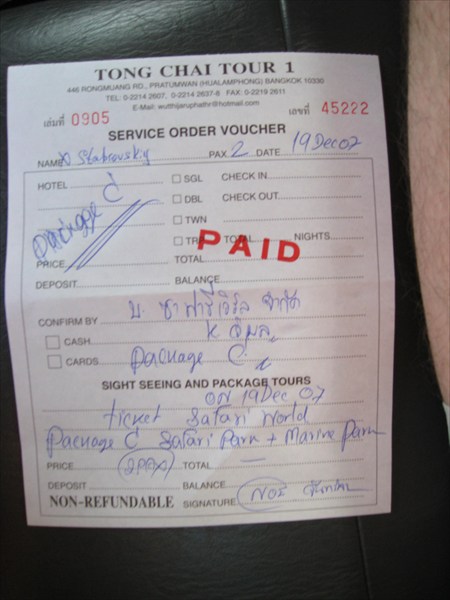 TONG CHAI TOUR 1
446 RONGMUANG RD., PRATUMWAN (HUALAMPHONG) BANGKOK 10330
TEL: 0-2214 2607, 0-2214 2637-8 FAX: 0-2219 2611
E-Mail: wutthijaruphathr@hotmail.com
เล่มที่ 0905 เลขที่ 45222
SERVICE ORDER VOUCHER
NAME Stabrovskiy PAX 2 DATE 19 Dec 07
HOTEL SGL CHECK IN
package C DBL CHECK OUT
TWN
TRP TOTAL NIGHTS
PAID
PRICE TOTAL
DEPOSIT BALANCE
CONFIRM BY บ. ซาฟารีเวิร์ล จำกัด
CASH K
CARDS package C
SIGHT SEEING AND PACKAGE TOURS
ON 19 Dec 07
ticket Safari World
Package C Safari Park + Marine Park
PRICE (2PAX) TOTAL —
DEPOSIT BALANCE
NON-REFUNDABLE SIGNATURE NOI